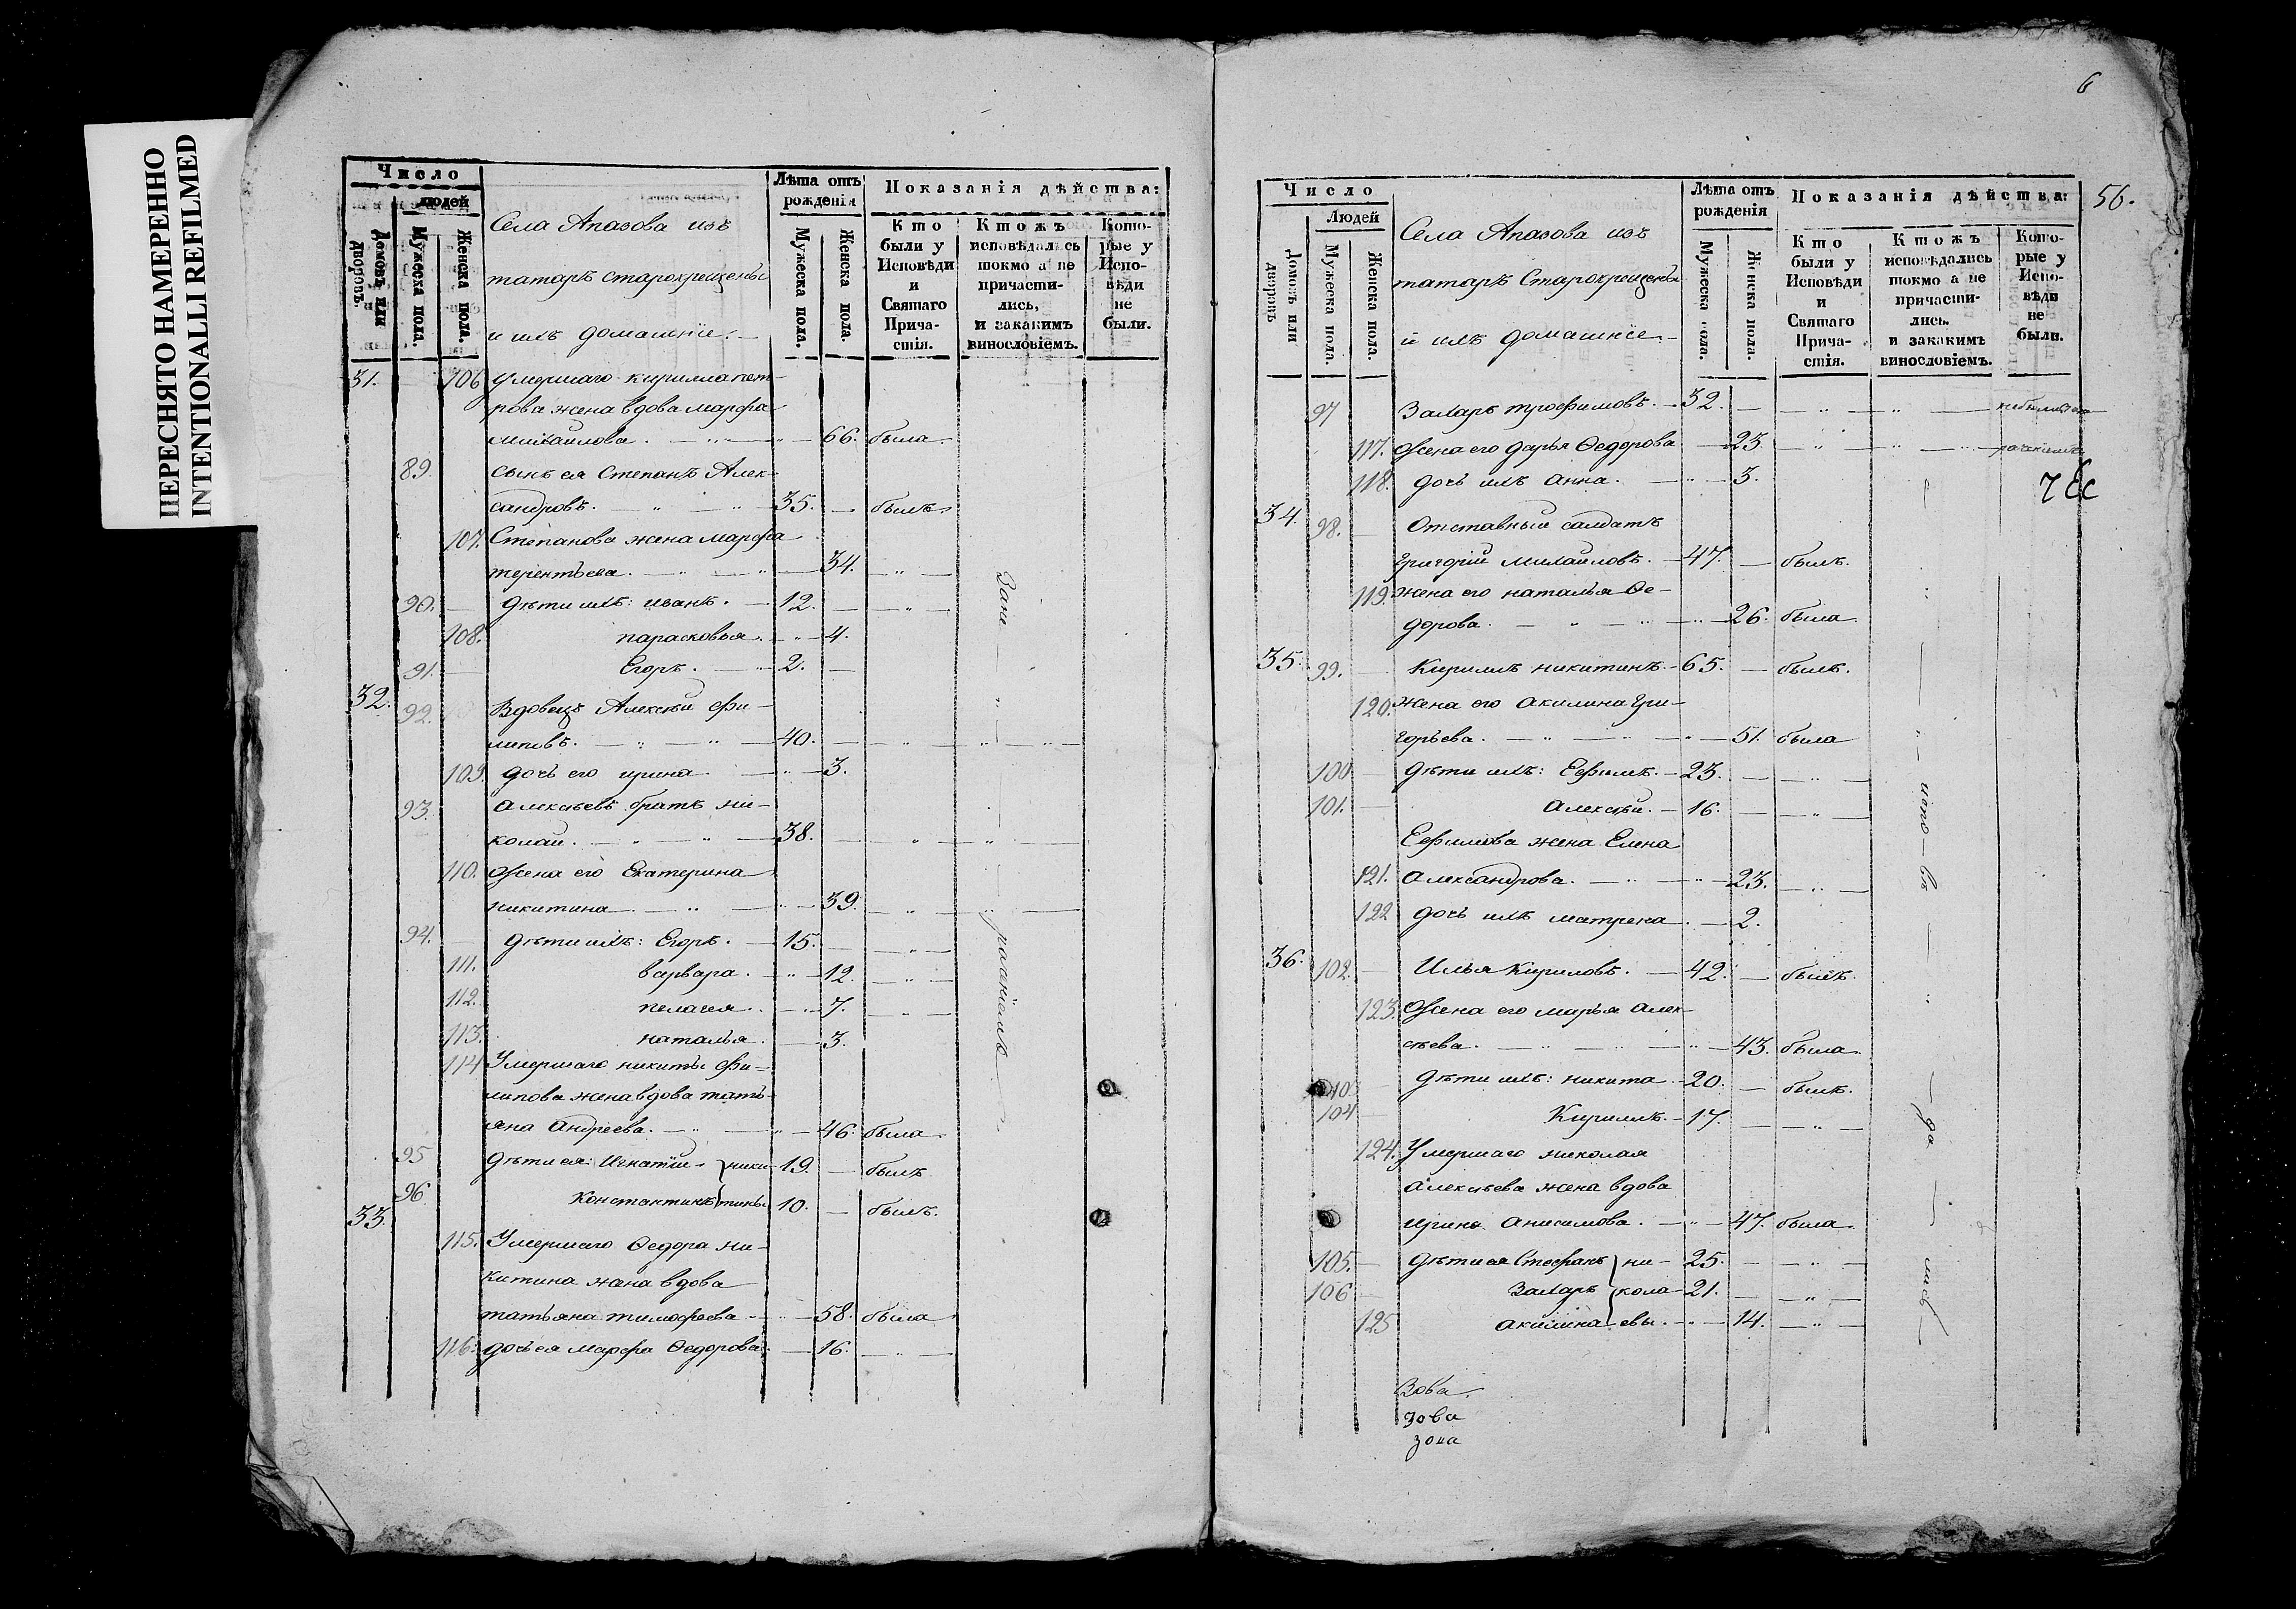 ПЕРЕСНЯТО НАМЕРЕННО
INTENTIONALLI REFILMED
Число
людей
Домовъ или дворовъ.
Мужеска пола.
Женска пола.
Села Апазова изъ
татаръ старокрещены
и ихъ домашніе.
Лѣта отъ рожденія
Мужеска пола.
Женска пола.
Показанія дѣйства:
Кто были у Исповѣди и Святаго Причастія.
Ктожъ исповѣдались токмо а не причастились, и закакимъ винословіемъ.
Которые у Исповѣди не были.
31. 106 Умершаго кирилла пет-
рова жена вдова марфа
михаилова. 66. была
89. сынъ ея Степанъ Алек-
сандровъ. 35. былъ
107. Степанова жена марфа
терентьева. 34. „
90. дѣти ихъ: иванъ. 12. „
108. парасковья. 4.
91. Егоръ. 2.
32. 92. Вдовецъ Алексѣй фи-
липовъ. 40. „ „
109. дочь его ирина. 3.
93. Алексѣевъ братъ ни-
колай. 38. „ „
110. Жена его Екатерина
никитина 39. „ „
94. дѣти ихъ: Егоръ. 15. „
111. варвара. 12. „
112. пелагея. 7. „
113. наталья. 3.
114 Умершаго никиты фи-
липова жена вдова тать-
яна Андреева. 46. была
95 дѣти ея: Игнатій ники- 19. былъ
96 Константинъ тины 10. былъ.
33. 115. Умершаго Ѳедора ни-
китина жена вдова
татьяна тимофеева 58. была
116. дочь ея марфа Ѳедорова. 16. „
6
56.
Число
Людей
Домовъ или дворовъ
Мужеска пола.
Женска пола.
Села Апазова изъ
татаръ Старокрещены
и ихъ домашніе
Лѣта отъ рожденія
Мужеска пола.
Женска пола.
Показанія дѣйства:
Кто были у Исповѣди и Святаго Причастія.
Ктожъ исповѣдались токмо а не причастились. и закакимъ винословіемъ.
Которые у Исповѣди не были.
97 Захаръ трофимовъ. 32. „ „
117. Жена его дарья Ѳедорова 23. „ „
118. дочь ихъ Анна. 3.
34. 98. Отставный салдатъ
Григорій михаиловъ. 47. былъ.
119. жена его наталья Ѳе-
дорова. 26. была
35. 99. Кириллъ никитинъ. 65. былъ.
120. жена его акилина Гри-
горьева. 51. была
100 дѣти ихъ: Ефимъ. 23. „
101. Алексѣй. 16. „
Ефимова жена Елена
121. Александрова. 23. „
122 дочь ихъ матрена 2.
36. 102. Илья Кириловъ. 42. былъ.
123. Жена его марья Алек-
сѣева. 43. была
дѣти ихъ: никита 20. былъ.
104 Кириллъ. 17. „
124. Умершаго николая
Алексѣева жена вдова
ирина Анисимова. 47. была
105. дѣти ея Стефанъ ни- 25. „
106 Захаръ кола- 21. „
125 акилина евы. 14. „